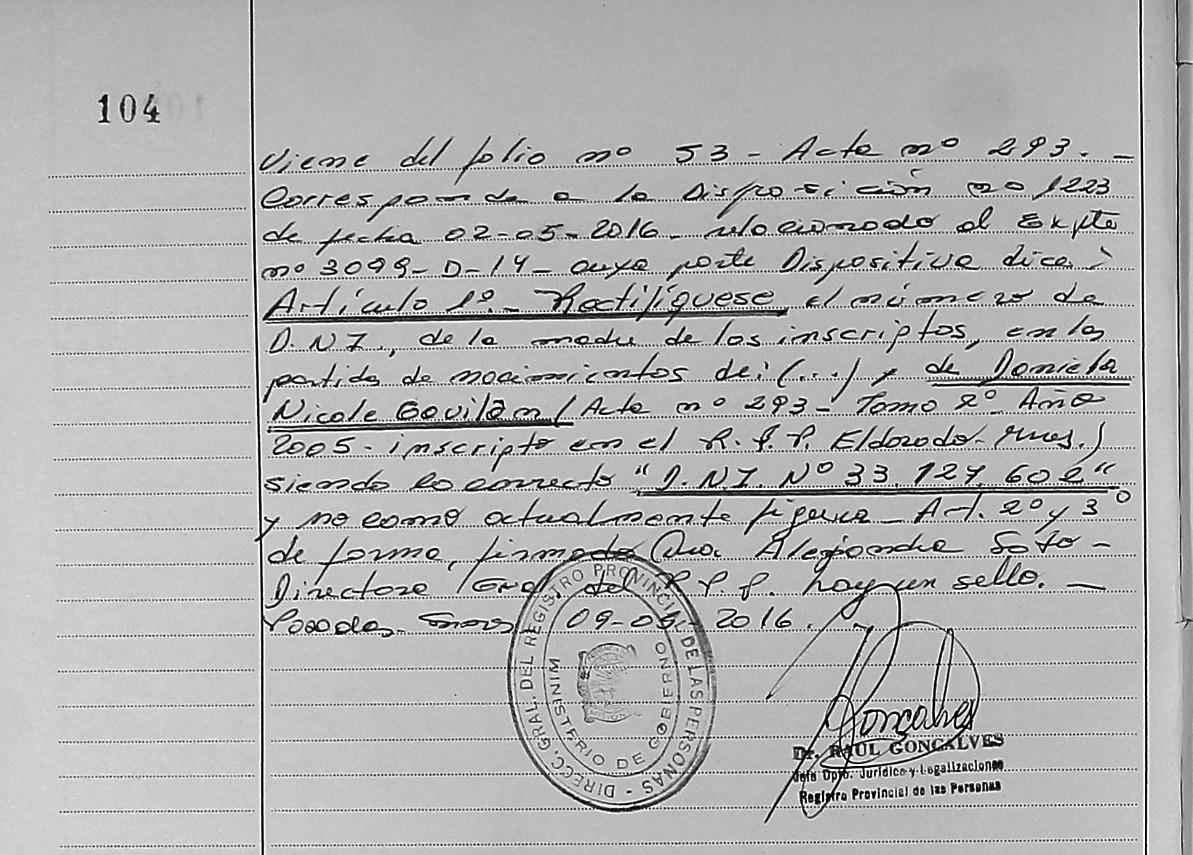 104
Viene del folio nº 53 - Acta nº 293. -
Corresponde a la Disposición nº 1223
de fecha 02-05-2016 - relacionado al Expte
nº 3099-D-14 - cuya parte Dispositiva dice:
Artículo 1º.- Rectifíquese el número de
D.N.I., de la madre de los inscriptos, en las
partida de nacimientos de: (...) y de Daniela
Nicole Gavilán (Acta nº 293 - Tomo 2º - Año
2005 - inscripto en el R.P.P. Eldorado - Mnes.)
siendo lo correcto "D.N.I. Nº 33.127.602"
y no como actualmente figura - Art. 2º y 3º
de forma, firmado Dra. Alejandra Soto -
Directora Gral. del R.P.P. hay un sello. -
Posadas - 09-05-2016.
DIRECC. GRAL. DEL REGISTRO PROVINCIAL DE LAS PERSONAS -
MINISTERIO DE GOBIERNO
Goncalves
Dr. RAUL GONCALVES
Jefe Dpto. Jurídico y Legalizaciones
Registro Provincial de las Personas